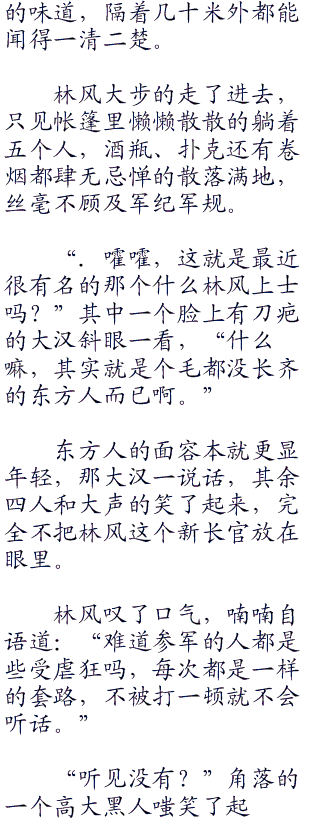 的味道，隔着几十米外都能
闻得一清二楚。
林风大步的走了进去，
只见帐篷里懒懒散散的躺着
五个人，酒瓶、扑克还有卷
烟都肆无忌惮的散落满地，
丝毫不顾及军纪军规。
“．嚯嚯，这就是最近
很有名的那个什么林风上士
吗？”其中一个脸上有刀疤
的大汉斜眼一看，“什么
嘛，其实就是个毛都没长齐
的东方人而已啊。”
东方人的面容本就更显
年轻，那大汉一说话，其余
四人和大声的笑了起来，完
全不把林风这个新长官放在
眼里。
林风叹了口气，喃喃自
语道：“难道参军的人都是
些受虐狂吗，每次都是一样
的套路，不被打一顿就不会
听话。”
“听见没有？”角落的
一个高大黑人嗤笑了起